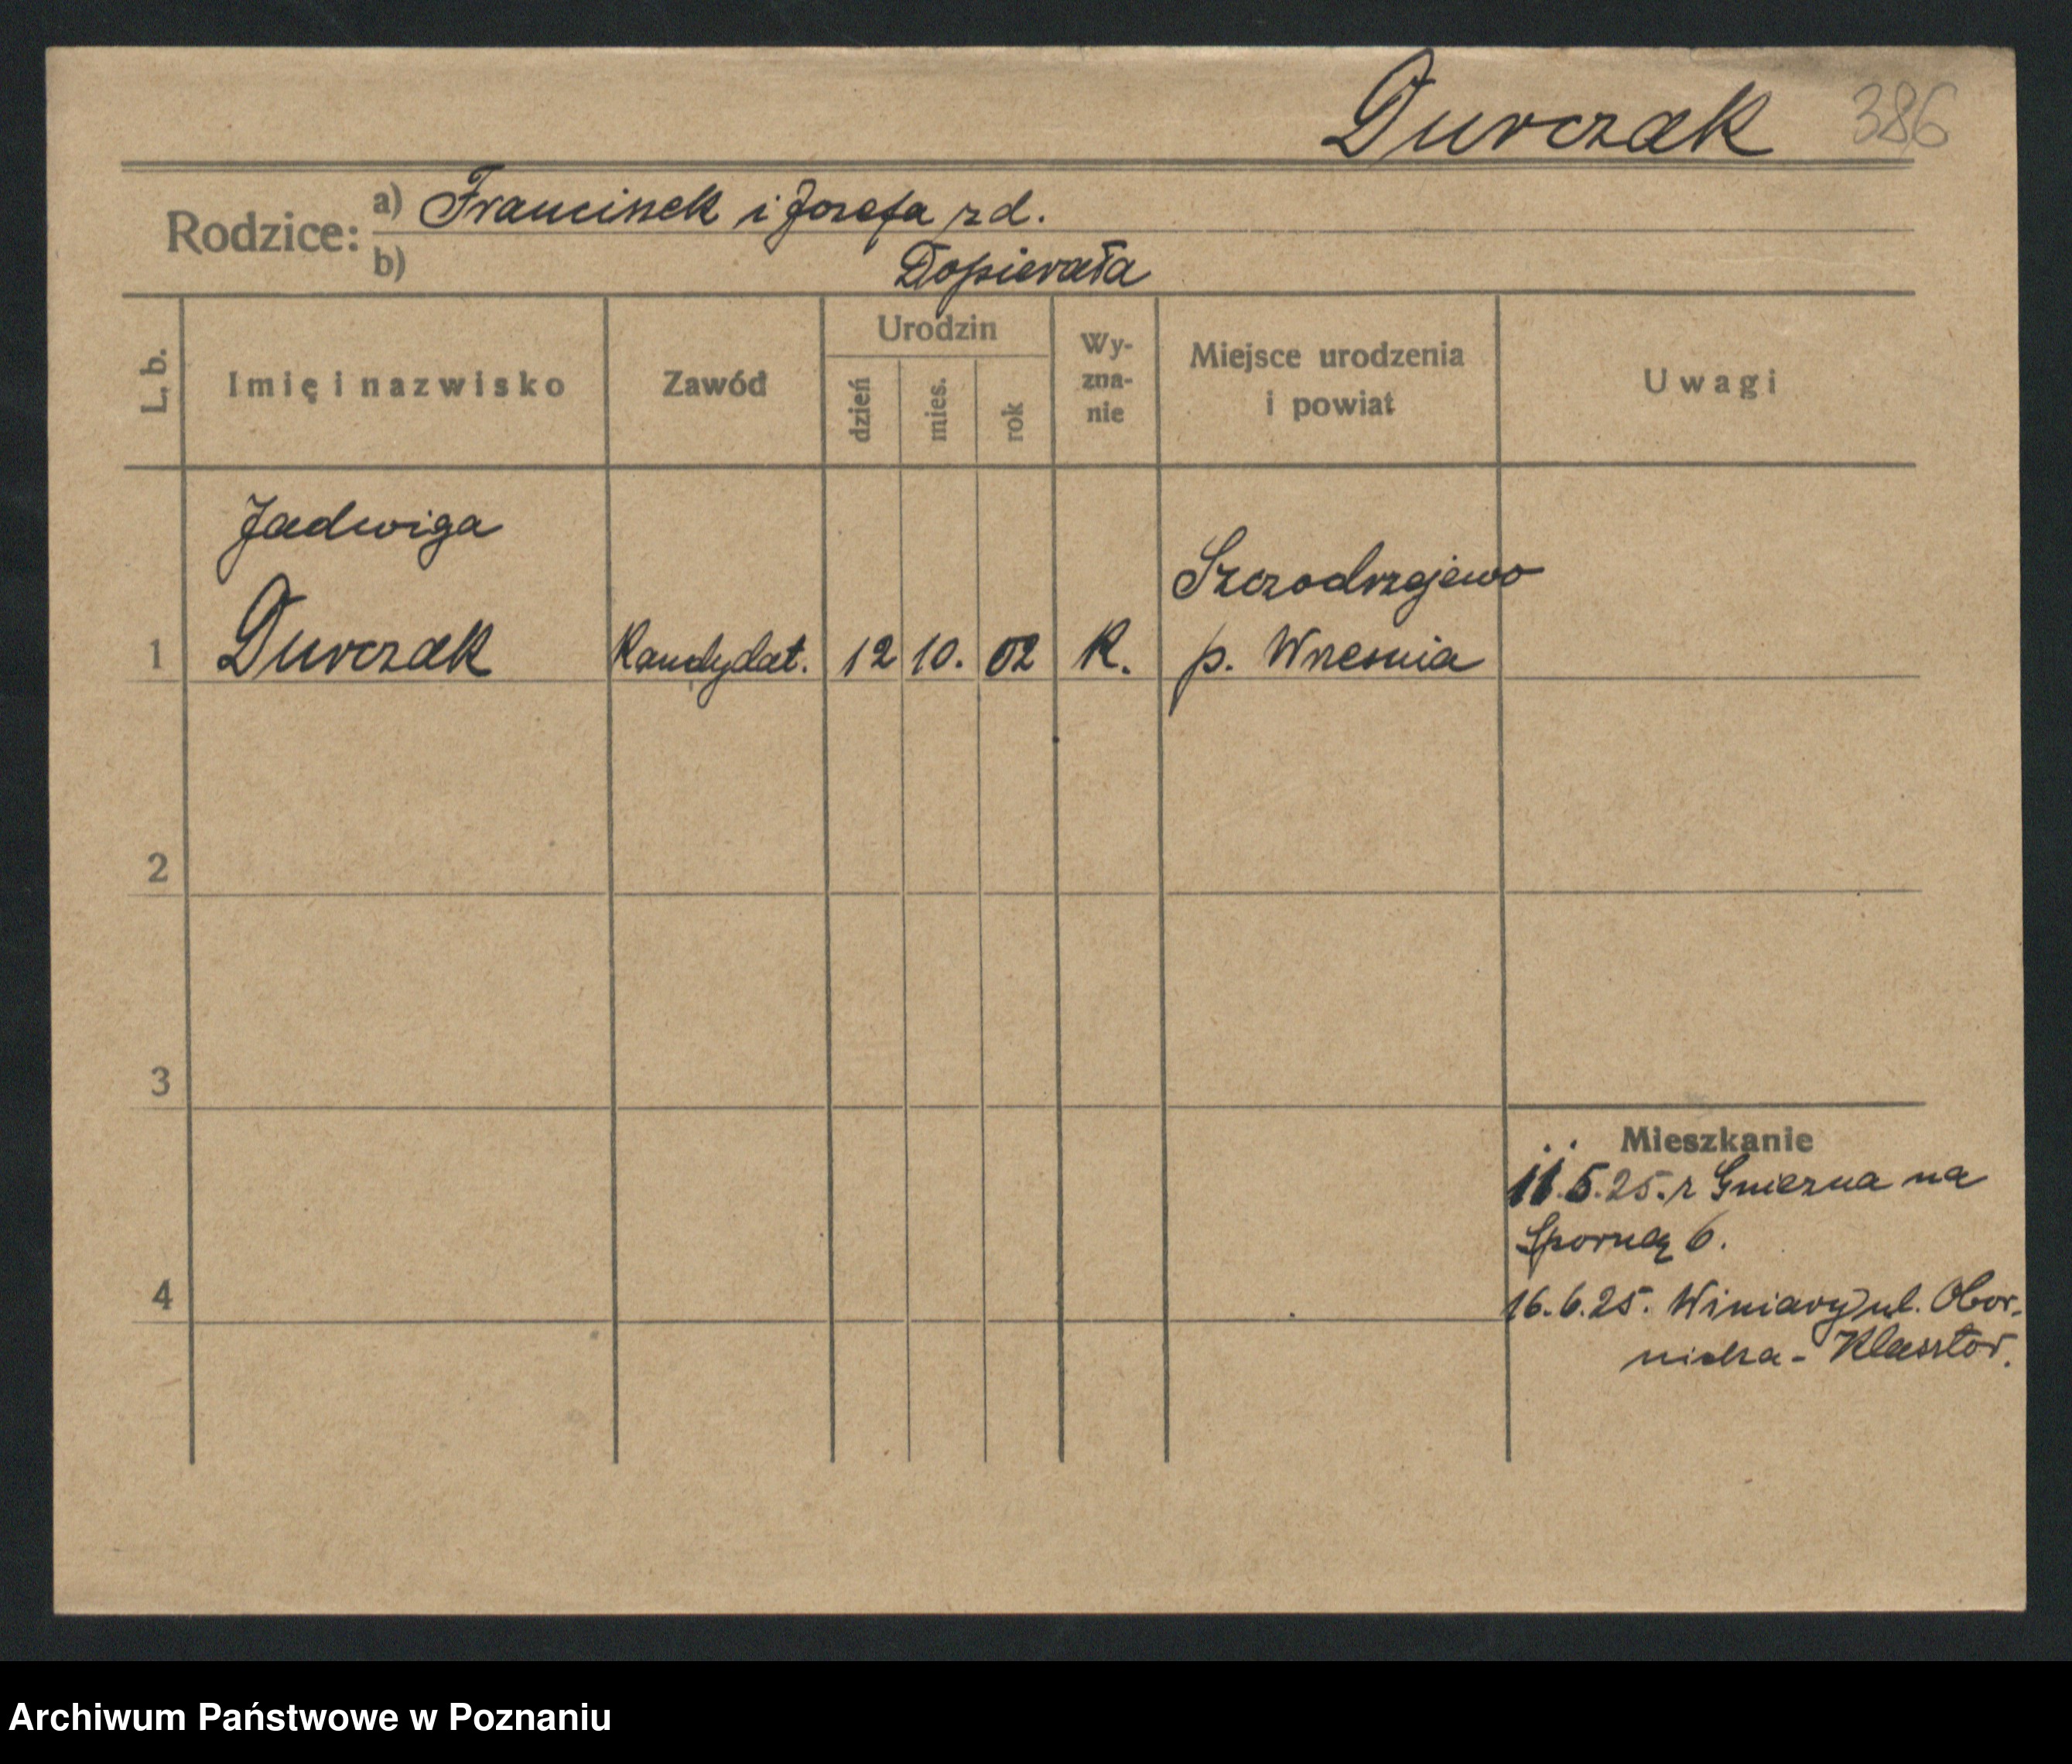 Durczak 386
Rodzice: a) Franciszek i Józefa zd.
b) Dopierała
L. b. Imię i nazwisko Zawód Urodzin dzień mies. rok Wy-zna-nie Miejsce urodzenia i powiat Uwagi
Jadwiga
Szczodrzejewo
1 Durczak Kandydat. 12 10. 02 K. p. Września
2
3
Mieszkanie
11.5.25. z Gniezna na
Sporną 6.
4
16.6.25. Winiary ul. Obor-
nicka - Klasztor.
Archiwum Państwowe w Poznaniu